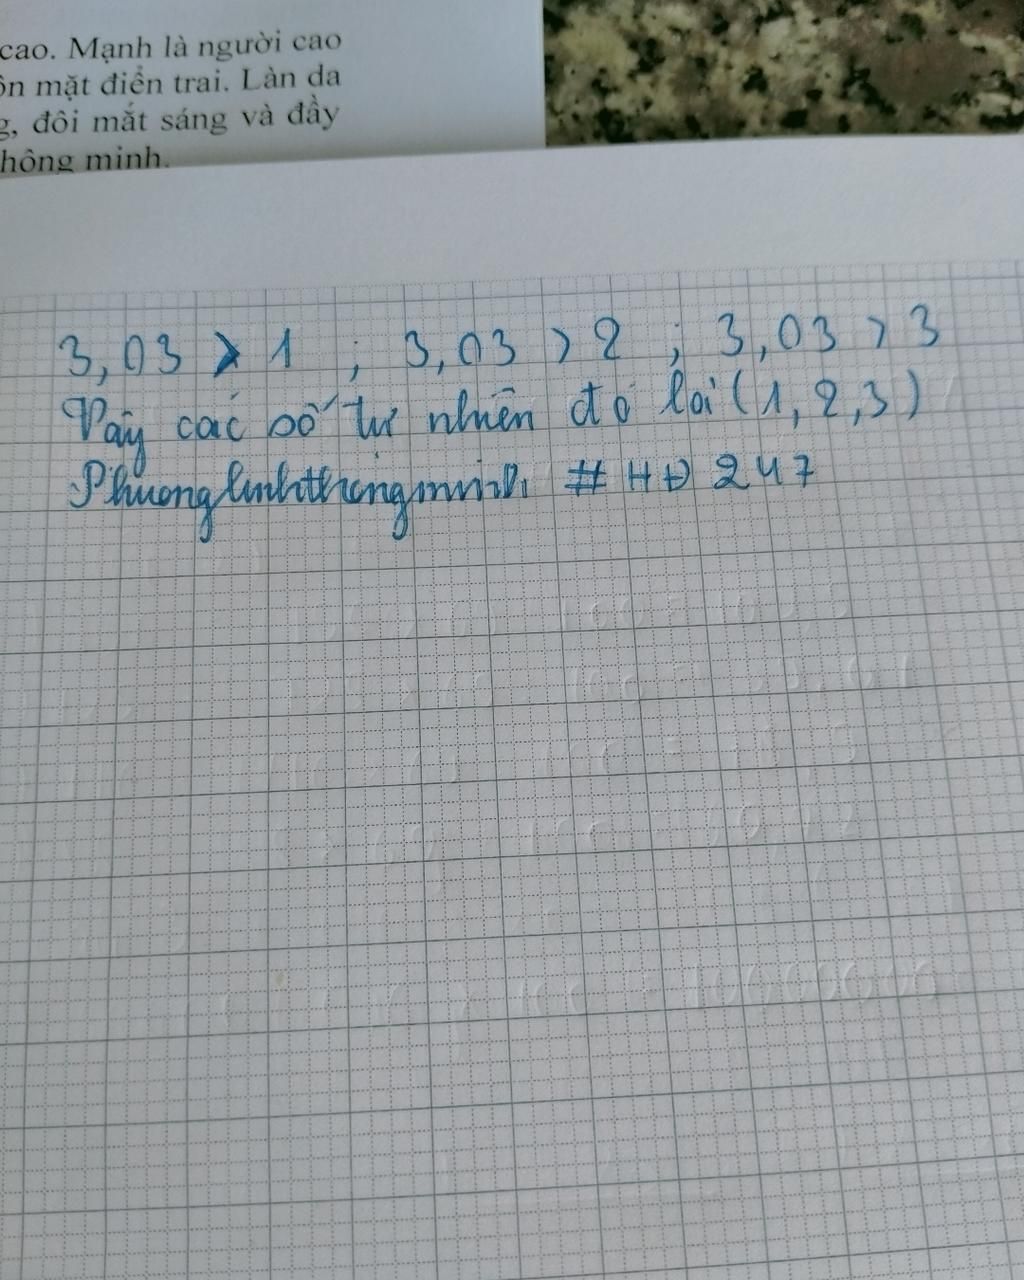 cao. Mạnh là người cao
ôn mặt điển trai. Làn da
g, đôi mắt sáng và đầy
hông minh.
3,03 > 1 ; 3,03 > 2 ; 3,03 > 3
Vậy các số tự nhiên đó là (1, 2, 3)
Phuonglinhthongminh # HĐ 247